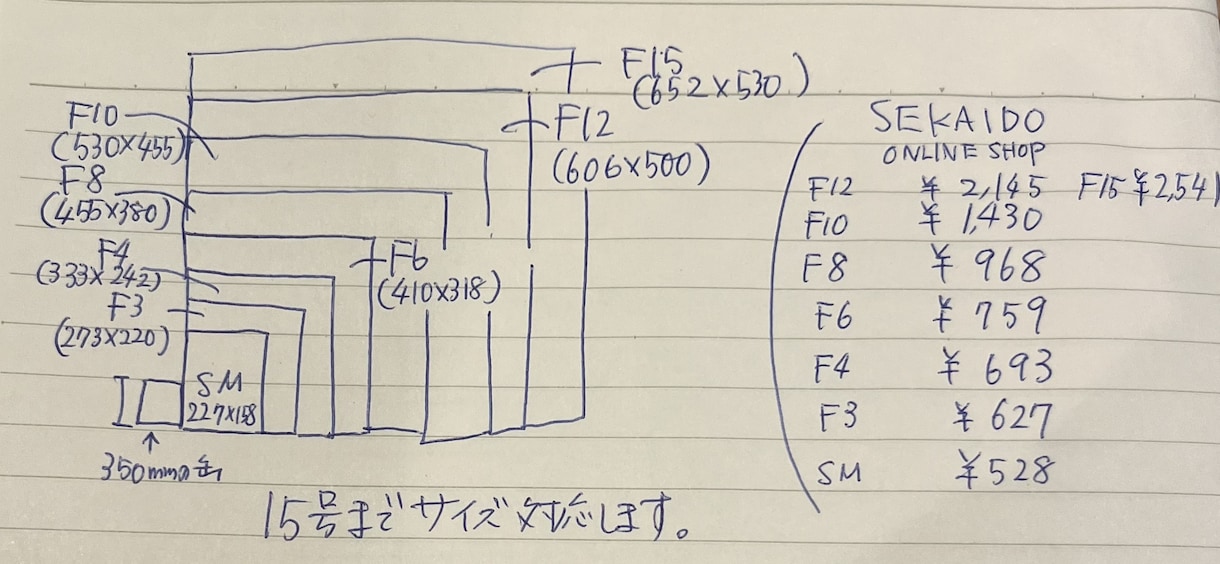 F15
(652×530)
F10
(530×455)
F12
(606×500)
F8
(455×380)
F4
(333×242)
F6
(410×318)
F3
(273×220)
SM
227×158
350mmの缶
15号までサイズ対応します。
SEKAIDO
ONLINE SHOP
F12 ¥2,145 F15 ¥2,541
F10 ¥1,430
F8 ¥968
F6 ¥759
F4 ¥693
F3 ¥627
SM ¥528